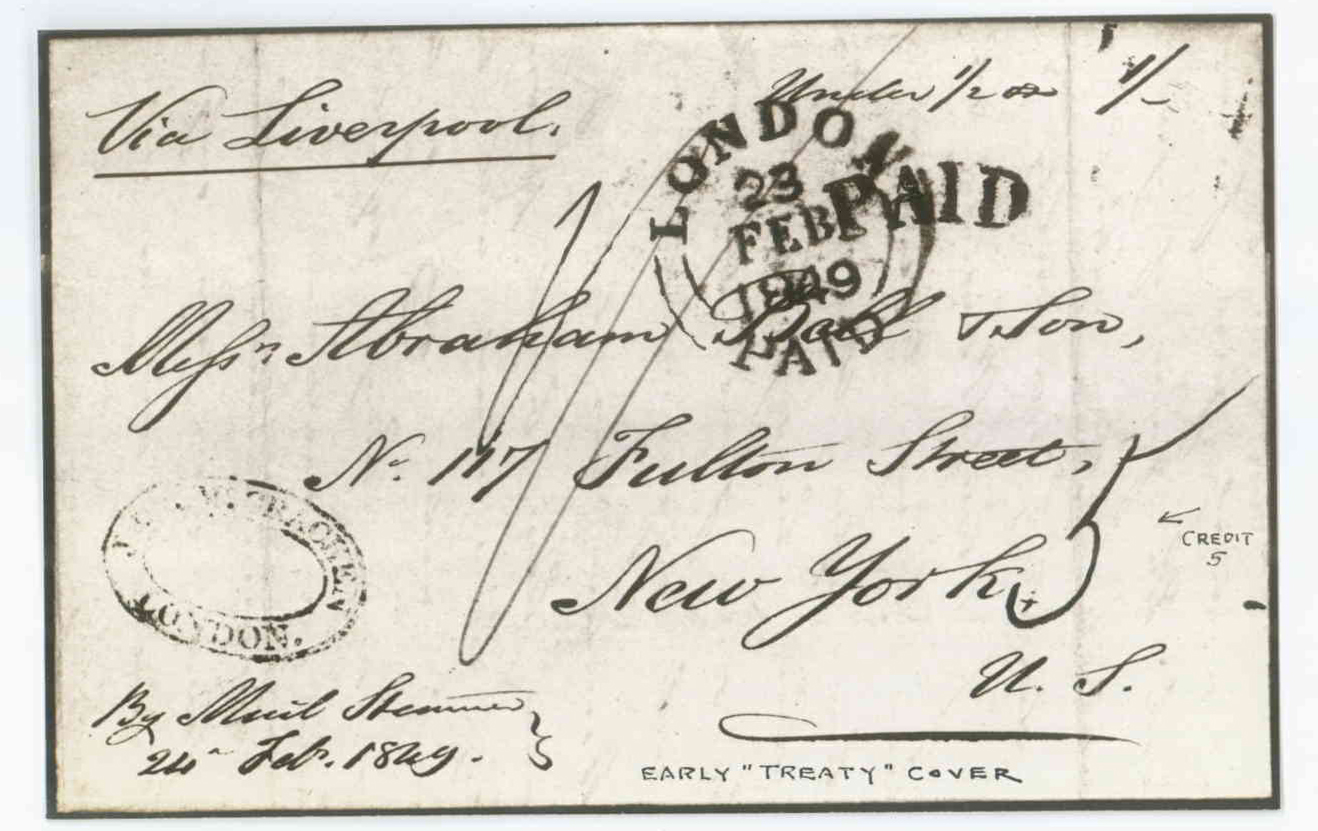 Under 1/2 oz 1/-
Via Liverpool.
LONDON
23
FEB
1849
PAID
PAID
Messrs Abraham Bell & Son,
No. 117 Fulton Street,
New York,
U. S.
5
CREDIT
5
LONDON.
By Mail Steamer
24 Feb. 1849.
EARLY "TREATY" COVER